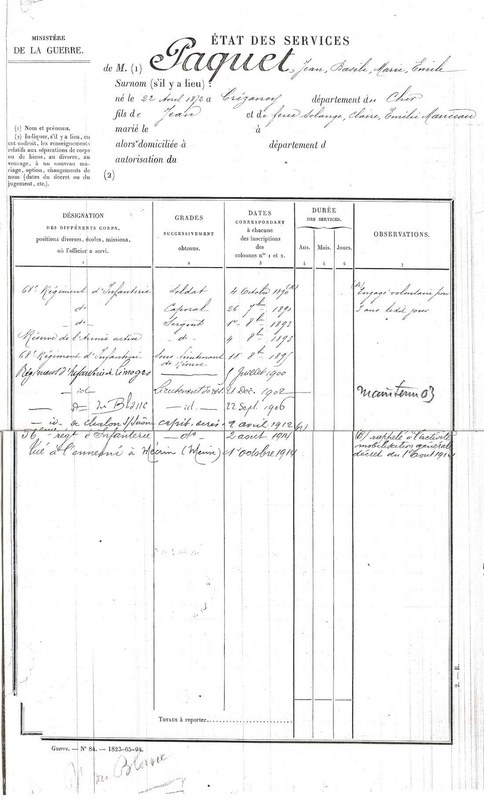 MINISTÈRE
DE LA GUERRE.
ÉTAT DES SERVICES
de M. (1) Paquet, Jean, Basile, Marie, Emile
Surnom (s'il y a lieu) :
né le 22 Avril 1872 à Crézancy département du Cher
fils de Jean et de feue Solange, Claire, Emilie Manceau
marié le à
alors domiciliée à département d
autorisation du
(2)
(1) Nom et prénoms.
(2) Indiquer, s'il y a lieu, en
cet endroit, les renseignements
relatifs aux séparations de corps
ou de biens, au divorce, au
veuvage, à un nouveau mariage, option, changements de
nom (dates du décret ou du
jugement, etc.).
DÉSIGNATION
DES DIFFÉRENTS CORPS,
positions diverses, écoles, missions,
où l'officier a servi.
1
GRADES
SUCCESSIVEMENT
obtenus.
2
DATES
CORRESPONDANT
à chacune
des inscriptions
des colonnes nos 1 et 2.
3
DURÉE
DES SERVICES.
Ans. Mois. Jours.
4 5 6
OBSERVATIONS.
7
68e Régiment d'Infanterie Soldat 4 Octobre 1890 (a) (a) Engagé volontaire pour
do Caporal 26 7bre 1891 3 ans ledit jour
do Sergent 1er 8bre 1892
Réserve de l'Armée active do 4 8bre 1893
68e Régiment d'Infanterie Sous Lieutenant de Réserve 18 8bre 1895
Régiment d'Infanterie de Limoges Juillet 1900
id Lieutenant de rés. 21 Dec. 1902 Maintenu 03
do Le Blanc id 22 Sept. 1906
id de Chalon s/Saone capit. de rés. 2 avril 1912
56e régt d'Infanterie do 2 août 1914 (b) (b) rappelé à l'activité
mobilisation générale
décret du 1er Août 1914
Tué à l'ennemi à Mécrin (Meuse) 1er octobre 1914
TOTAUX à reporter
Guerre. — N° 84. — 1823-65-94.